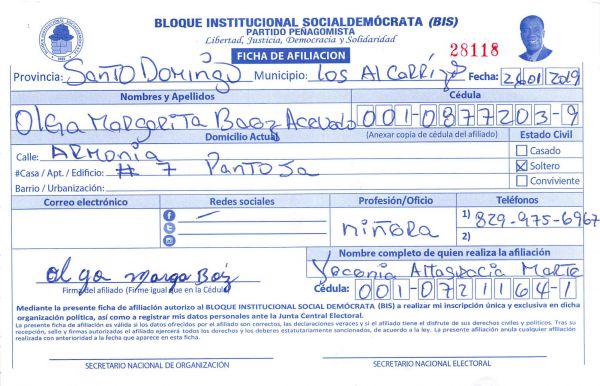 BLOQUE INSTITUCIONAL SOCIALDEMÓCRATA (BIS)
PARTIDO PEÑAGOMISTA
Libertad, Justicia, Democracia y Solidaridad
FICHA DE AFILIACION
28118
Provincia: Santo Domingo Municipio: Los Alcarrizos Fecha: 26 01 2019
Nombres y Apellidos Cédula
Olga Margarita Baez Acevedo 001-0877203-9
Domicilio Actual (Anexar copia de cédula del afiliado) Estado Civil
Calle: Armonia Casado
#Casa / Apt. / Edificio: # 7 Pantoja Soltero
Barrio / Urbanización: Conviviente
Correo electrónico Redes sociales Profesión/Oficio Teléfonos
niñera 1) 829-975-6967
2)
Nombre completo de quien realiza la afiliación
olga Marga Baéz Yocania Altagracia Marte
Firma del afiliado (Firme igual que en la Cédula) Cédula: 001-0721164-1
Mediante la presente ficha de afiliación autorizo al BLOQUE INSTITUCIONAL SOCIAL DEMÓCRATA (BIS) a realizar mi inscripción única y exclusiva en dicha
organización política, así como a registrar mis datos personales ante la Junta Central Electoral.
La presente ficha de afiliación es válida si los datos ofrecidos por el afiliado son correctos, las declaraciones veraces y si el afiliado tiene el disfrute de sus derechos civiles y políticos. Tras su
recepción, sello y firmas autorizadas el afiliado ejercerá todos los derechos y los deberes estatutariamente sancionados, de acuerdo a la ley. La presente afiliación anula cualquier afiliación
realizada con anterioridad a la fecha que aparece en esta ficha.
SECRETARIO NACIONAL DE ORGANIZACIÓN SECRETARIO NACIONAL ELECTORAL